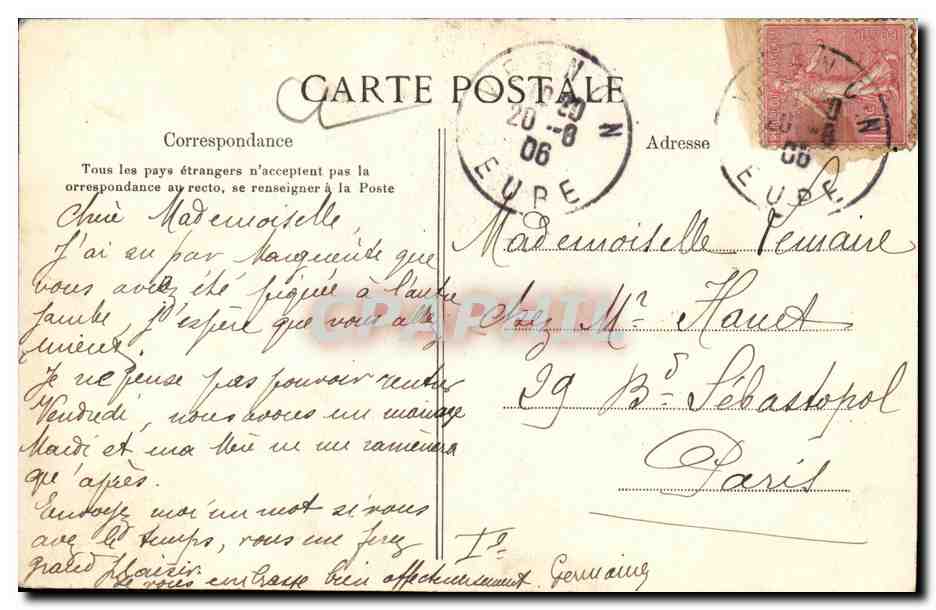 CARTE POSTALE
Correspondance
Tous les pays étrangers n'acceptent pas la
orrespondance au recto, se renseigner à la Poste
Adresse
VERNON
20
20 -6
06
EURE
VERNON
20 -6
06
EURE
Chère Mademoiselle,
J'ai su par Marguerite que
vous aviez été piquée à l'autre
jambe, j'espère que vous allez
mieux.
Je ne pense pas pouvoir rentrer
Vendredi, nous avons un mariage
Mardi et ma Mère ne me ramènera
qu'après.
Envoyez moi un mot si vous
avez le temps, vous me ferez
grand plaisir.
Je vous embrasse bien affectueusement. Germaine
Mademoiselle Lemaire
Chez Mr Hanet
29 Bd Sébastopol
Paris
CPAPHIL